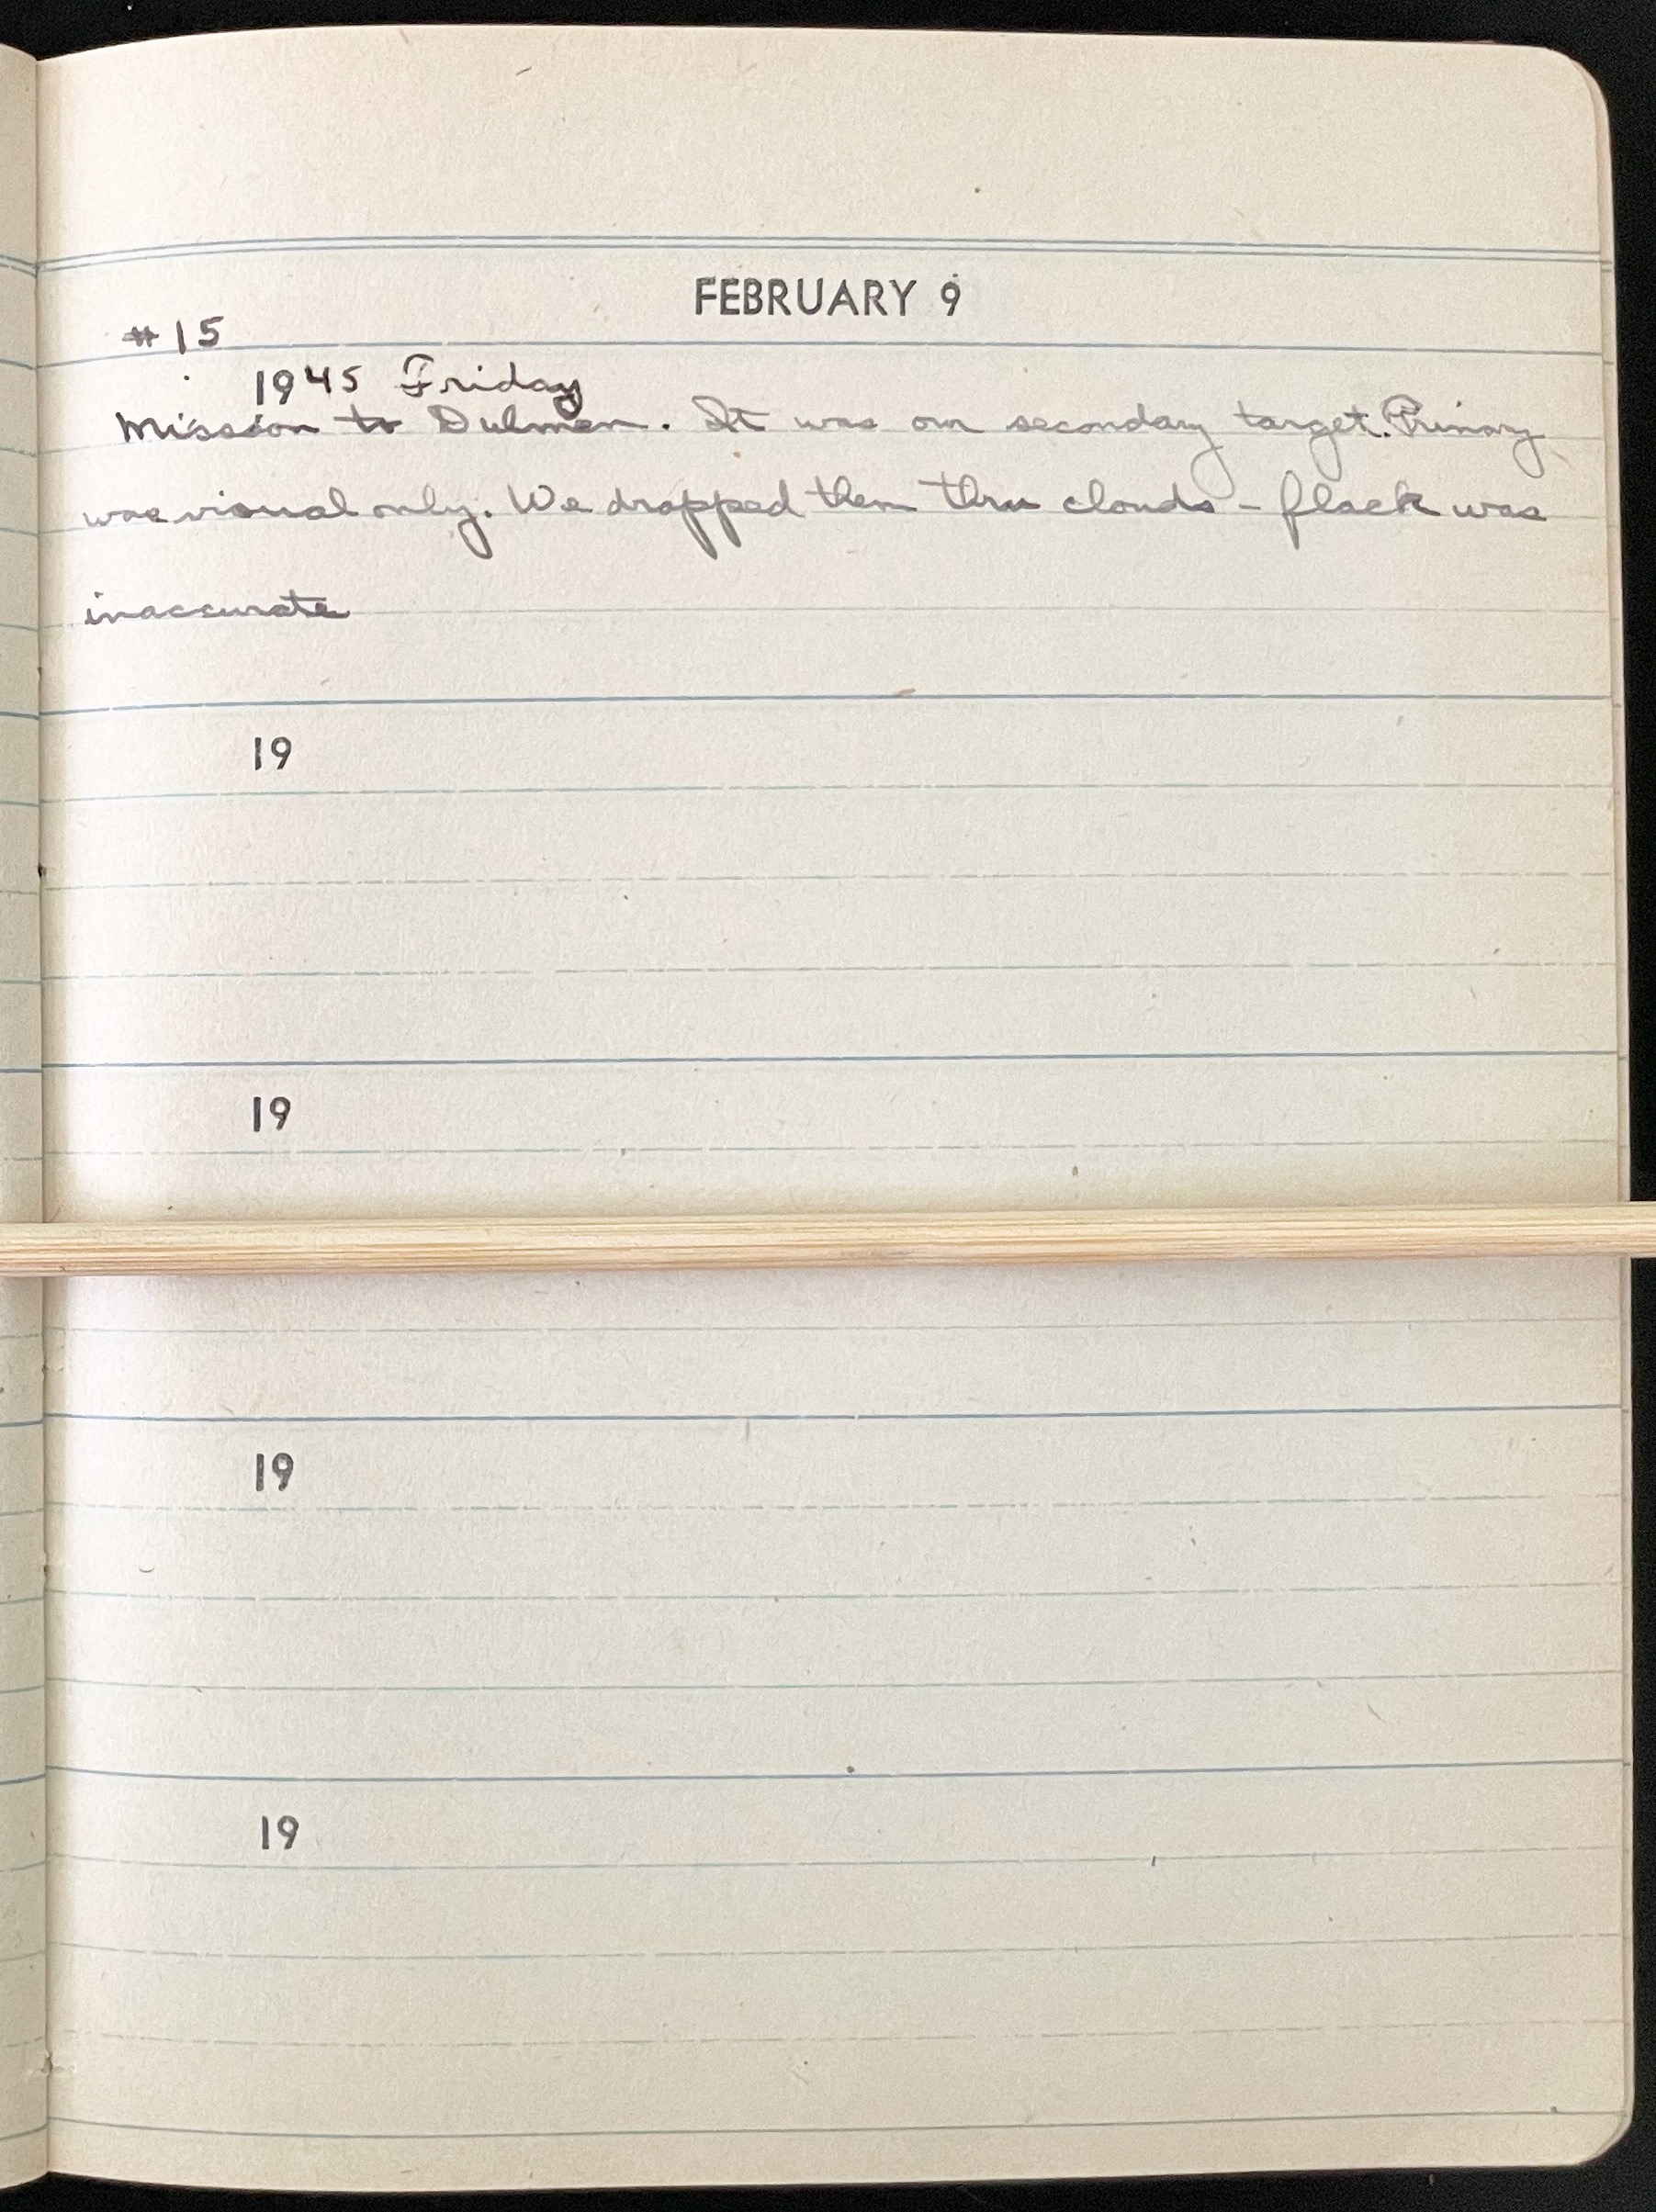 FEBRUARY 9
#15
1945 Friday
Mission to Dulmen. It was our secondary target. Primary
was visual only. We dropped them thru clouds - flack was
inaccurate
19
19
19
19